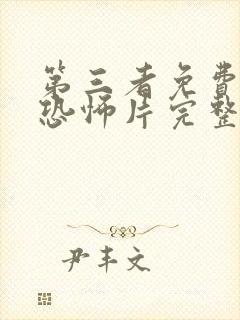 第三者免費
恐怖片完整
尹丰文